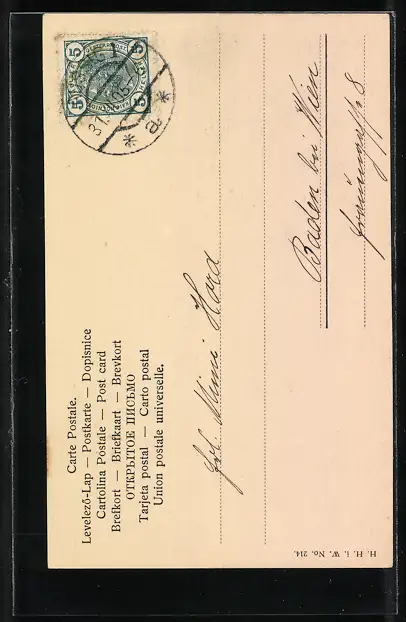 Carte Postale.
Levelező-Lap — Postkarte — Dopisnice
Cartolina Póstale — Post card
Brefkort — Briefkaart — Brevkort
ОТКРЫТОЕ ПИСЬМО
Tarjeta postal — Carto postal
Union postale universelle.
5 5
5 5
Frl. Mimi Hora
Baden bei Wien
8
H. H. i. W. No. 214.